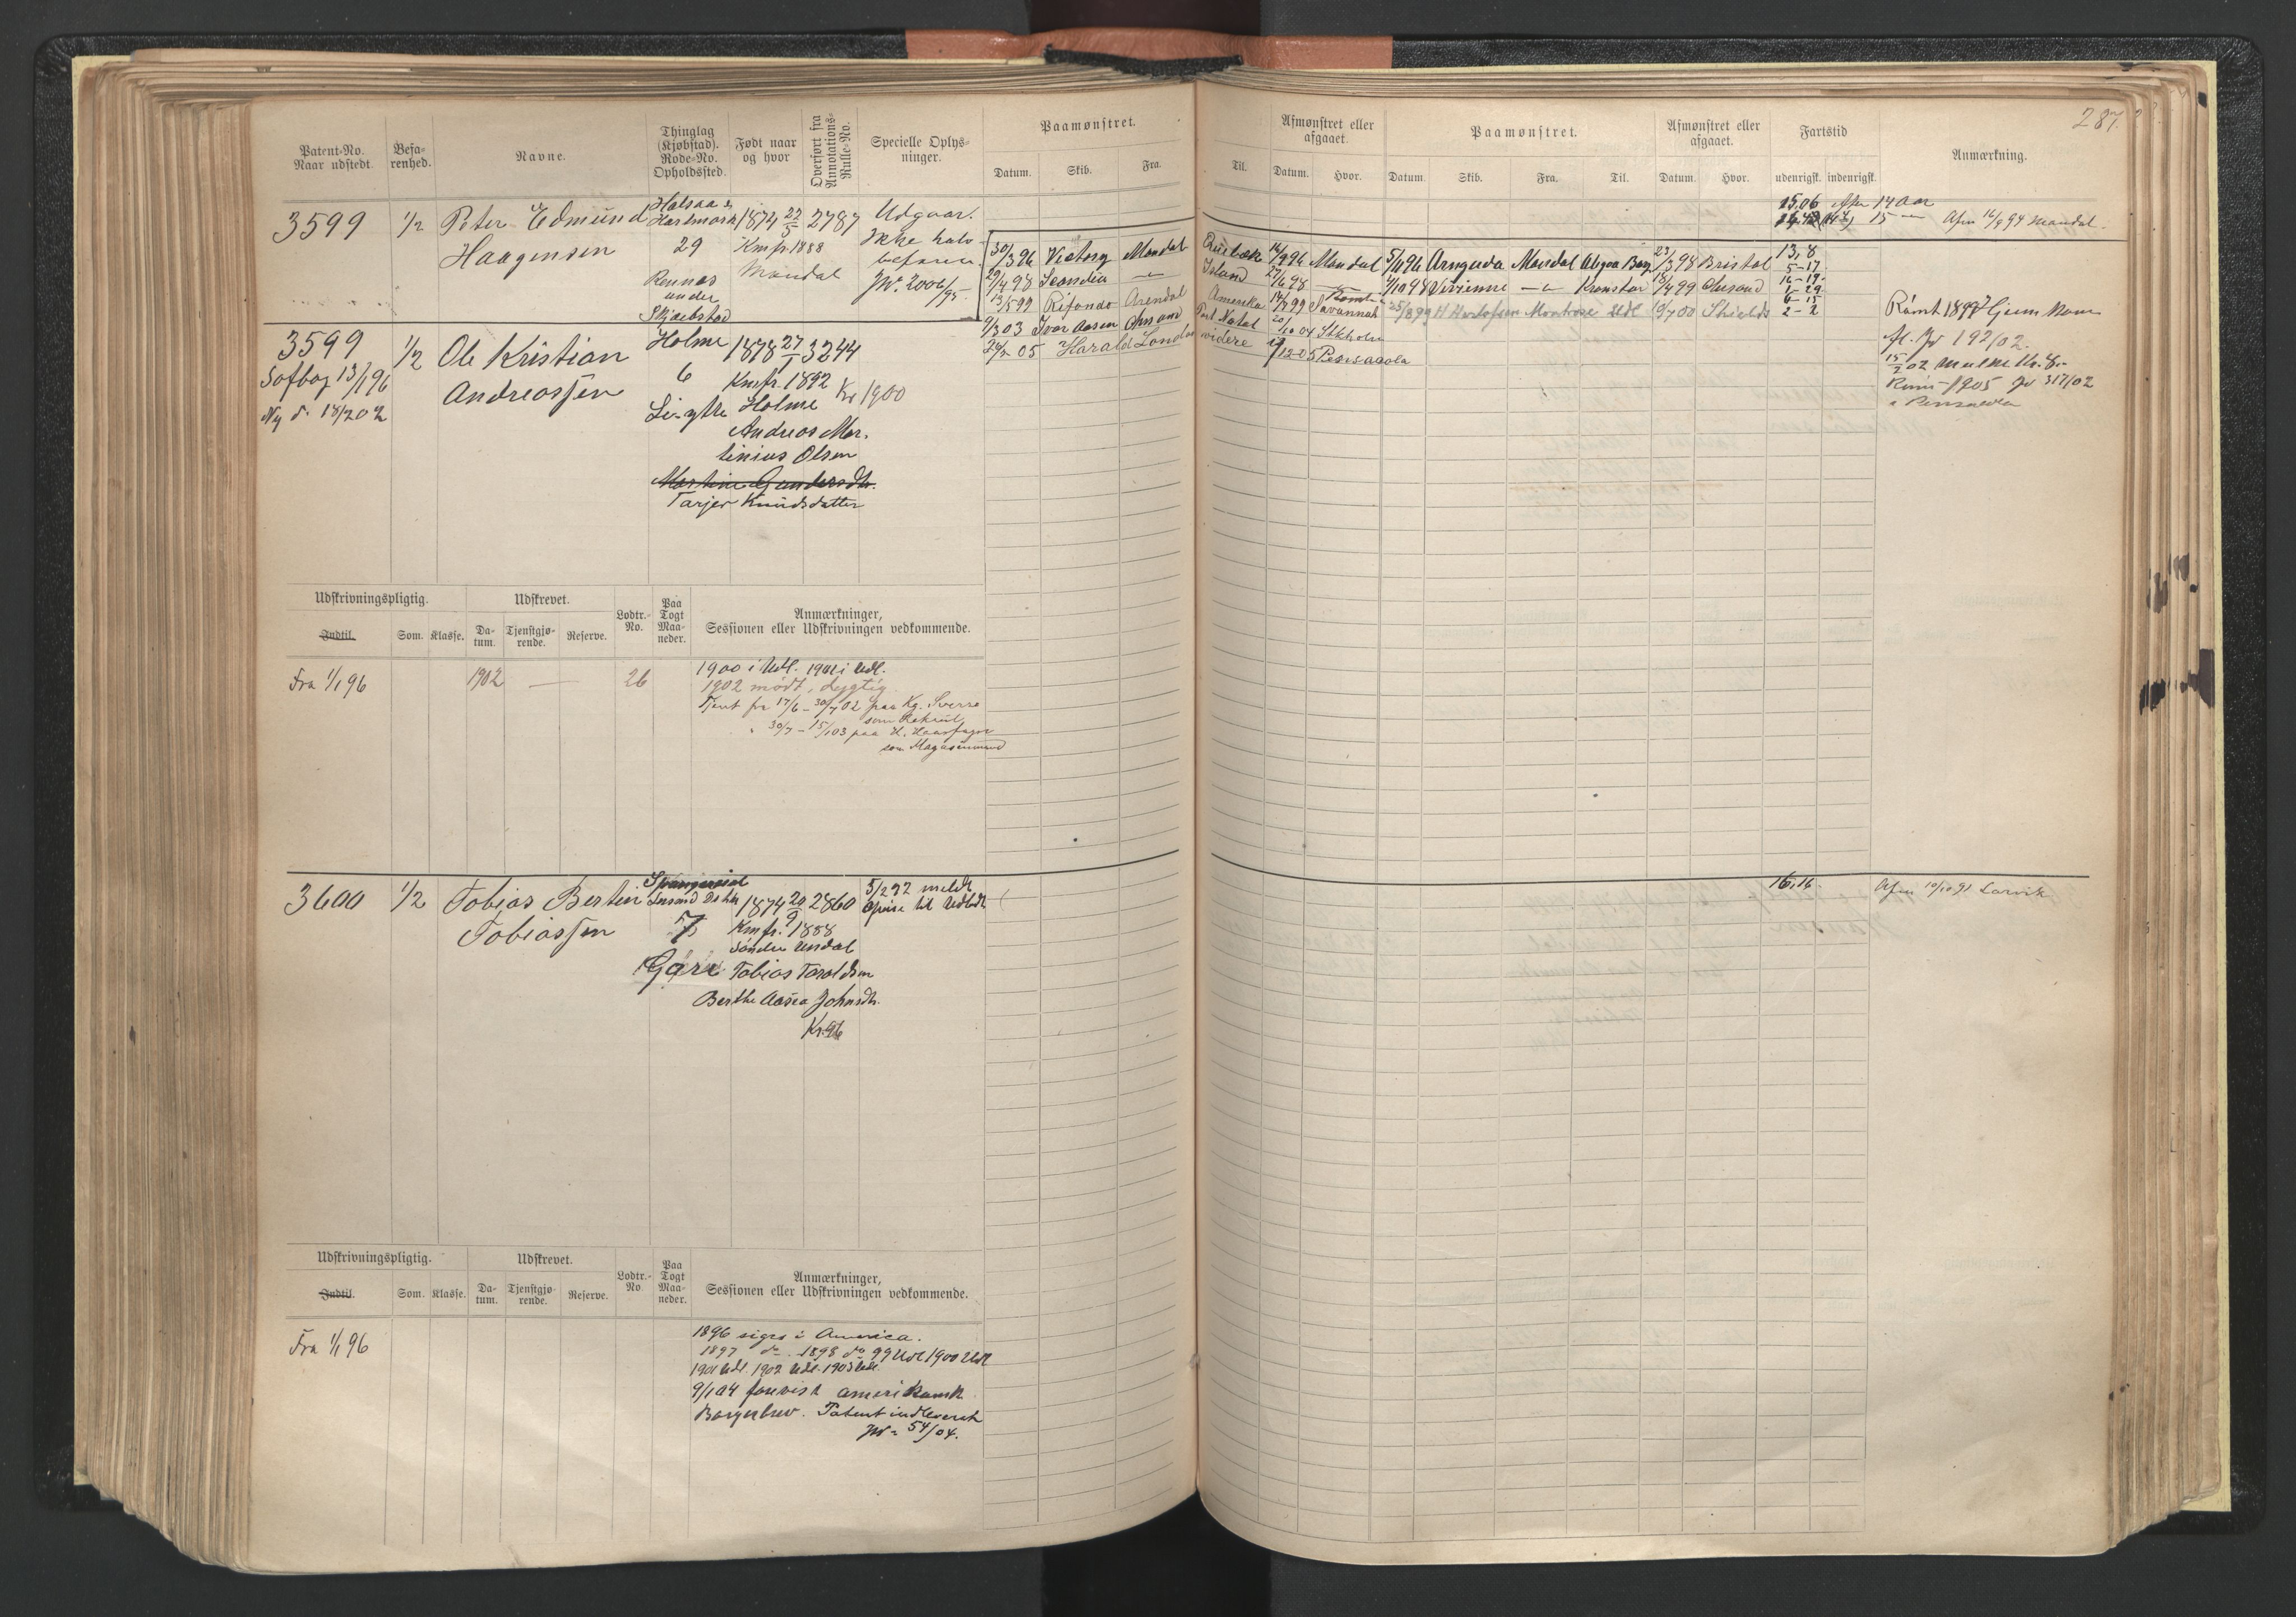 287.
Patent-No. Naar udstedt.
Befa-renhed.
Navne.
Thinglag (Kjøbstad). Rode-No. Opholdssted.
Født naar og hvor
Overført fra Annotations-Rulle-No.
Specielle Oplys-ninger.
Paamønstret.
Datum. Skib. Fra. Til.
Afmønstret eller afgaaet.
Datum. Hvor.
Paamønstret.
Datum. Skib. Fra. Til.
Afmønstret eller afgaaet.
Datum. Hvor.
Fartstid
udenrigsk. indenrigsk.
Anmærkning.
3599 1/2 Peter Edmund
Haagensen
Halsaa &
Hartmark
29
Rennes
under
Skjæbstad
1874 22/5 2787
Kmfr. 1888
Mandal
Udgaar.
Ikke halv
befaren.
JN. 2006/95
15.06 efter 14 Aar
15 Afm 16/9 94 Mandal.
3599
13/1 96
Ny d. 18/2 02
1/2
Ole Kristian
Andreassen
Holme
6
1878 27/1 3244
Kmfr. 1892
Holme
Kr 1900
Andreas Mar-
tinius Olsen
Martine Gundersdtr.
Tarjer Knudsdatter
30/3 96 Victory Mandal
14/9 96 Mandal 5/11 96 Mandal Algoa Bay 23/3 98 Bristol 13,8
29/4 98 Island 27/6 98 4/10 98 Vivienne Kragerø
13/5 99 Arendal Amerika 14/8 99 Savannah 25/8 99 Montrose Udl 00 Shields
9/3 03 Ivar Aasen Port Natal 20/10 04 Stkholm
05 Harald London videre 12 05 Pensacola
Rømt 1899
JN 192/02.
15/2 02 Mulkt Kr. 8.
Rømt 1905 JN 317/02
i Pensacola
Udskrivningspligtig.
Indtil. Som. Klasse.
Udskrevet.
Da-tum. Tjenstgjø-rende. Reserve.
Lodtr.-No.
Paa Togt Maa-neder.
Anmærkninger,
Sessionen eller Udskrivningen vedkommende.
Fra 1/1 96 1902 — 26
1900 i Udl. 1901 i Udl.
1902 mødt, dygtig.
Tjent fra 17/6 – 30/7 02 paa Kg. Sverre
som Rekrut,
" 30/7 – 15/1 03 paa H. Haarfagre
som Magasinmand
3600 1/2 Tobias Bertin
Tobiassen
7
1874 20/9 2860
Kmfr. 1888
Søndre Undal
Tobias Taraldsen
Berthe Aasea Johnsdtr.
Kr. 96
5/2 92 meldt
til Udlandt
16,16.
Afm 10/10 91 Larvik
Udskrivningspligtig.
Indtil. Som. Klasse.
Udskrevet.
Da-tum. Tjenstgjø-rende. Reserve.
Lodtr.-No
Paa Togt Maa-neder.
Anmærkninger,
Sessionen eller Udskrivningen vedkommende.
Fra 1/1 96
1896 siges i America.
1897 do. 1898 do 99 Udl 1900 Udl
1901 Udl. 1902 Udl. 1903 Udl.
9/1 04 forevist amerikansk
Borgerbrev. Patent indleveret
JN 54/04.